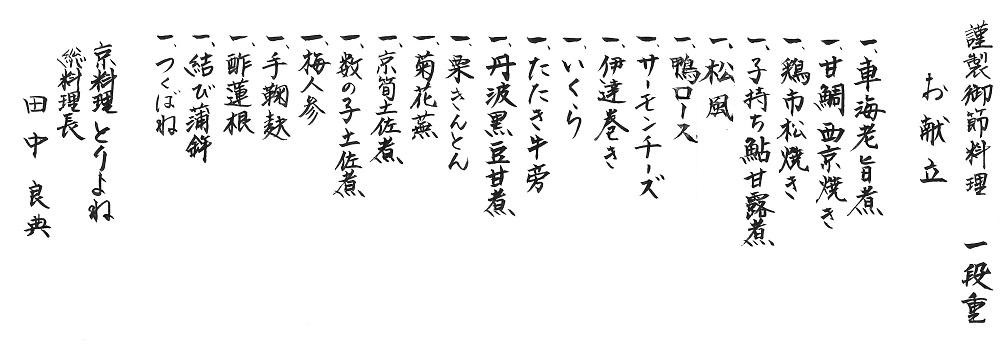 謹製御節料理 一段重
お献立
一、車海老旨煮
一、甘鯛西京焼き
一、鶏市松焼き
一、子持ち鮎甘露煮
一、松風
一、鴨ロース
一、サーモンチーズ
一、伊達巻き
一、いくら
一、たたき牛旁
一、丹波黒豆甘煮
一、栗きんとん
一、菊花蕪
一、京筍土佐煮
一、数の子土佐煮
一、梅人参
一、手鞠麸
一、酢蓮根
一、結び蒲鉾
一、つくばね
京料理とりよね
総料理長
田中 良典